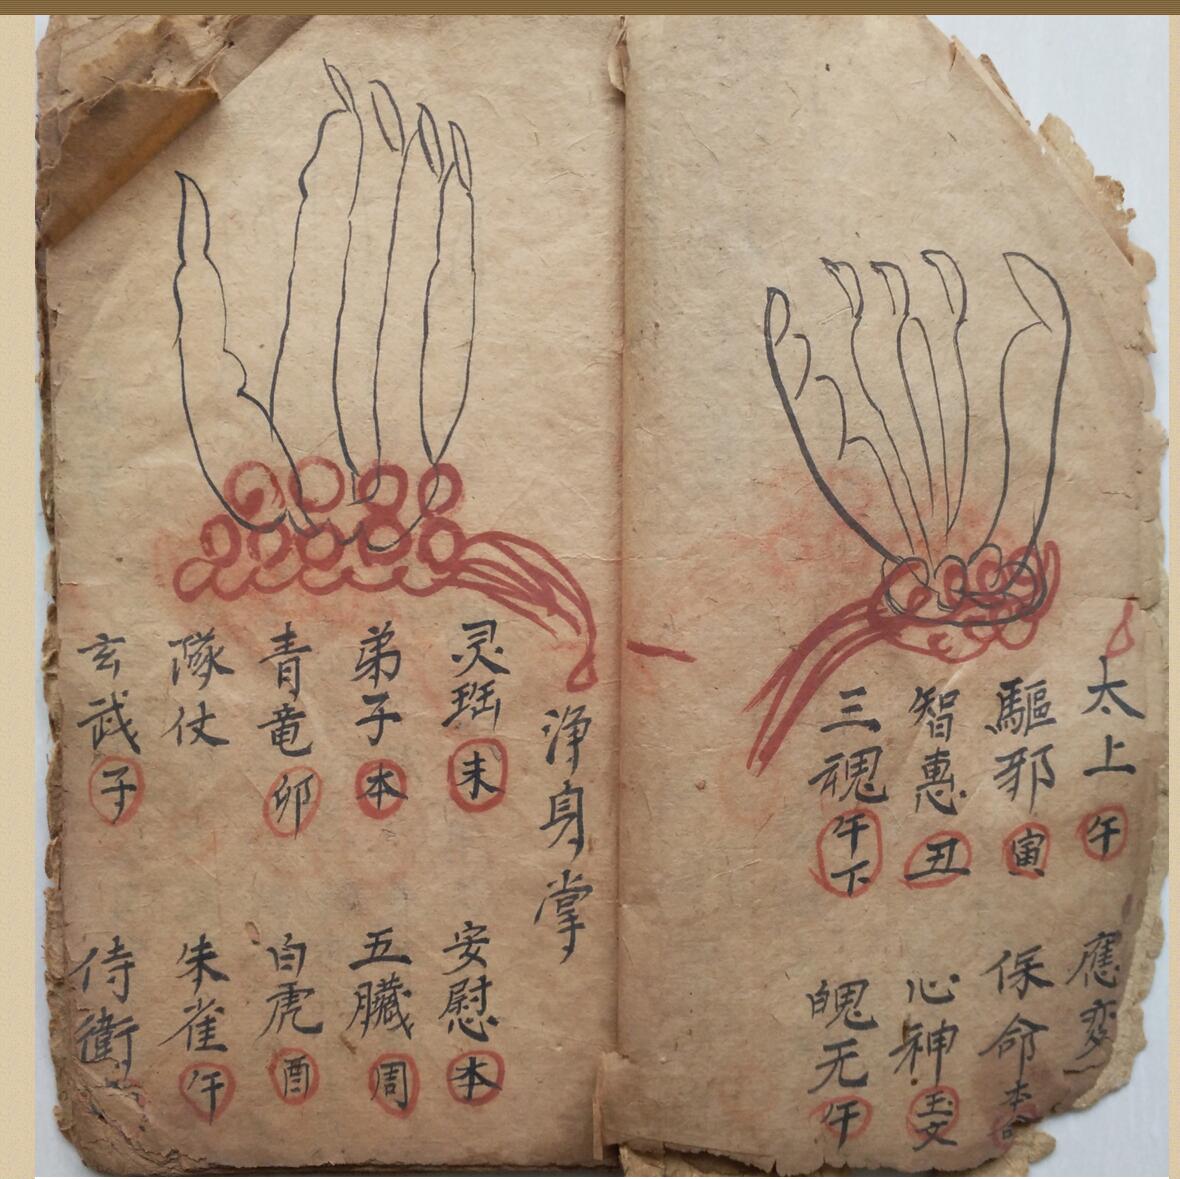 太上午 應変
驅邪寅 保命本
智惠丑 心神玉文
三魂午下 魄无午
浄身掌
灵珤未 安慰本
弟子本 五臓周
青竜卯 白虎酉
隊仗 朱雀午
玄武子 侍衛